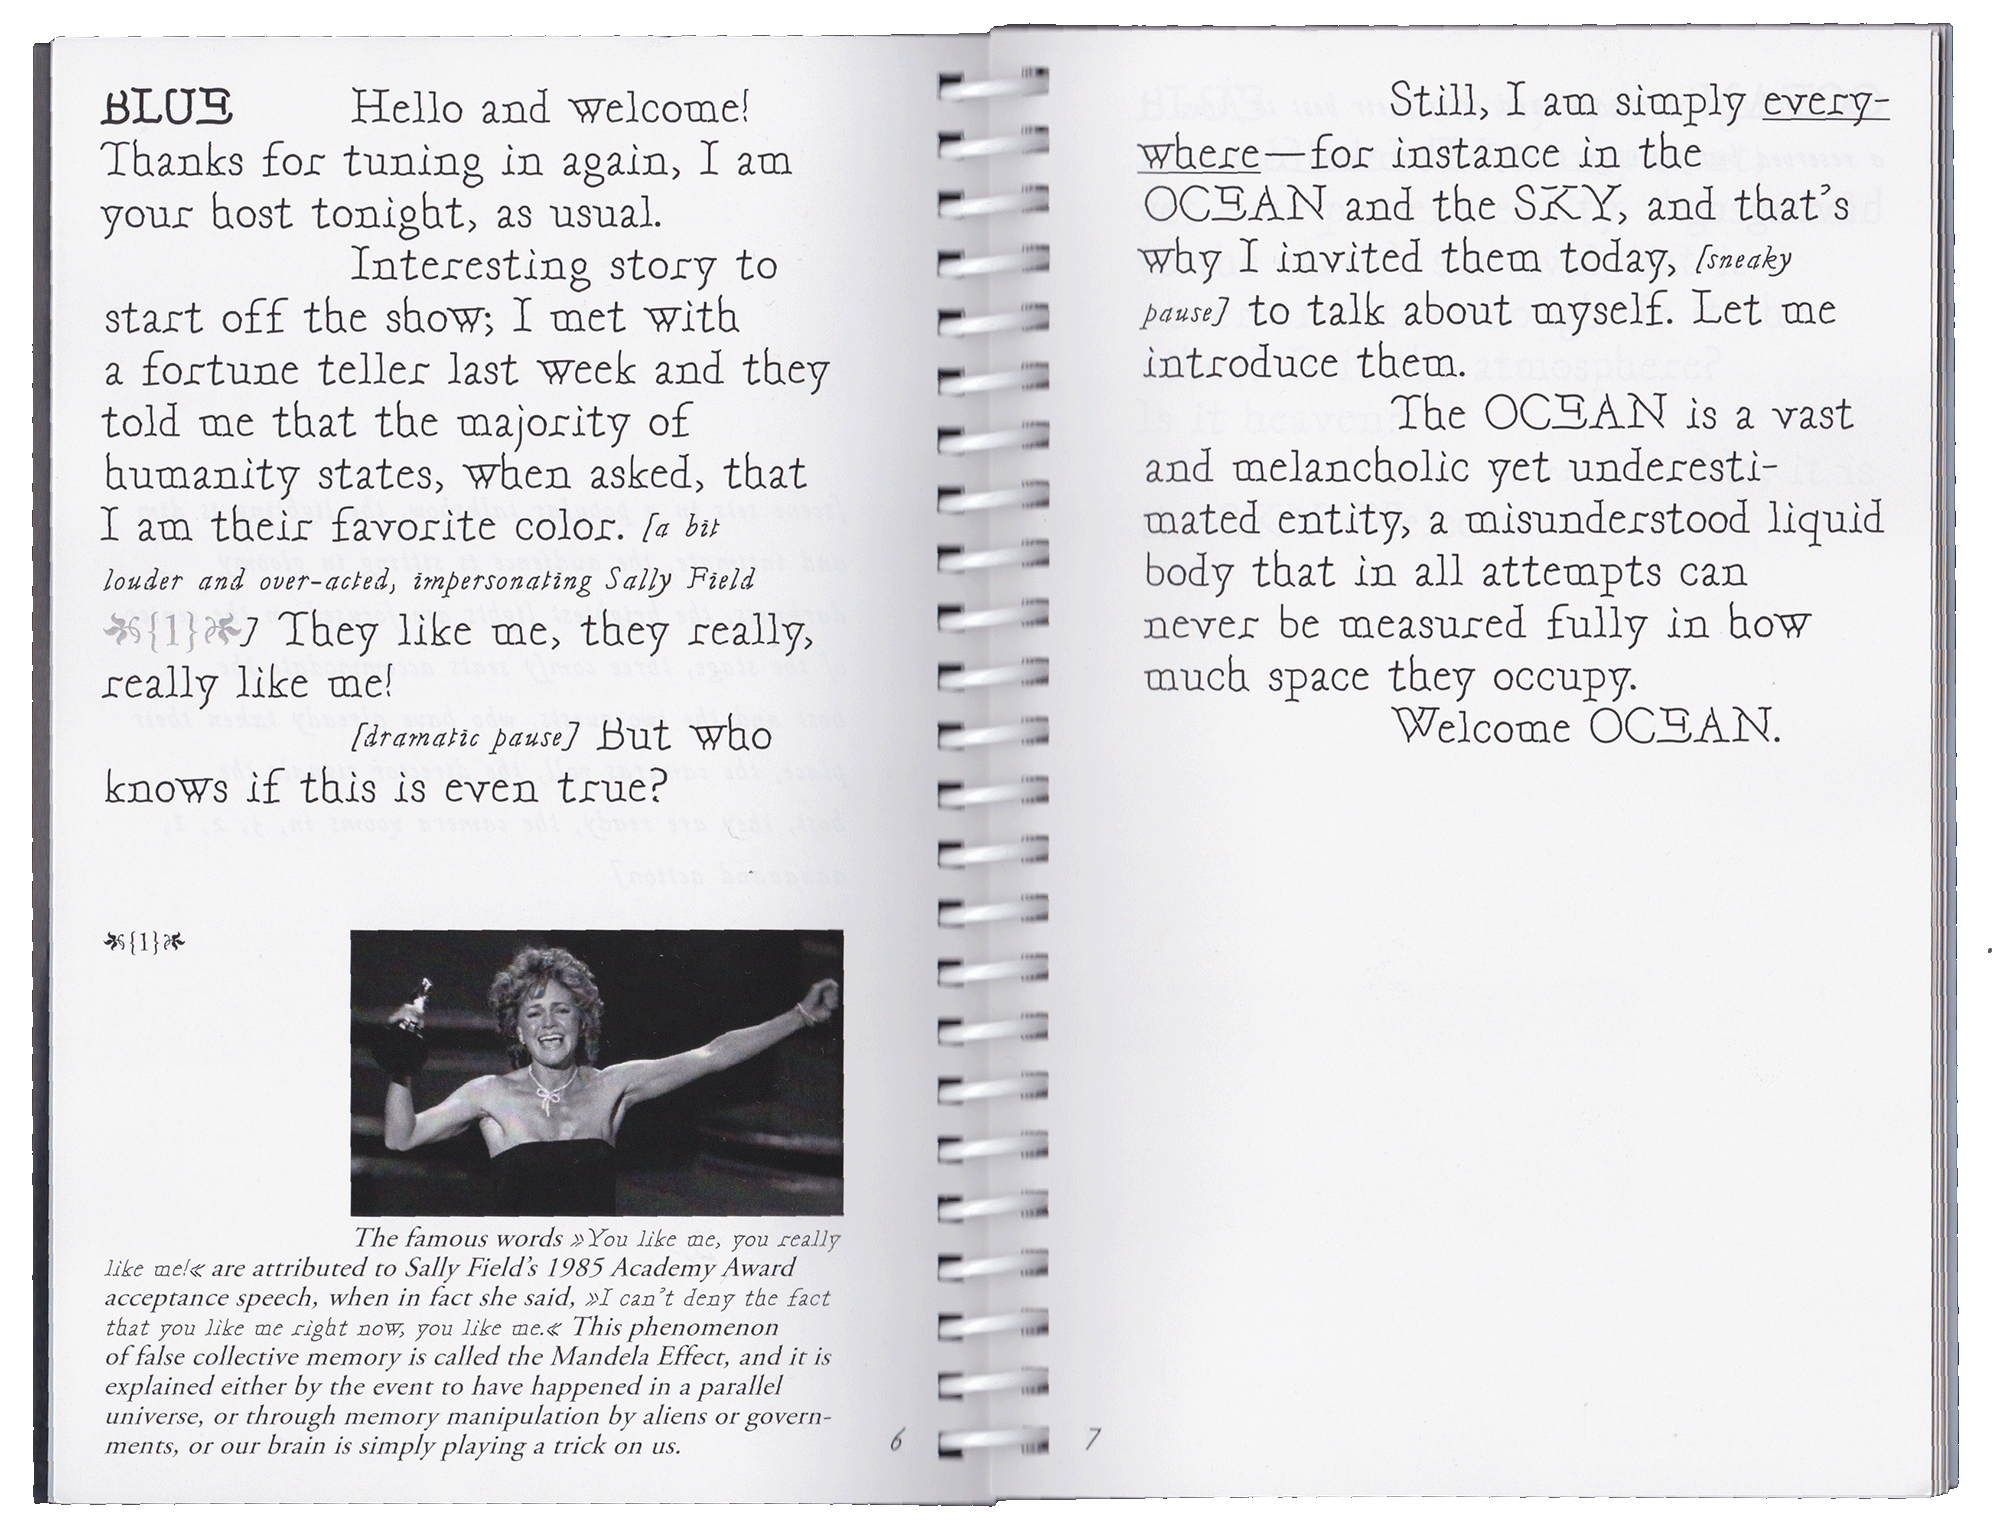 BLUE Hello and welcome!
Thanks for tuning in again, I am
your host tonight, as usual.
Interesting story to
start off the show; I met with
a fortune teller last week and they
told me that the majority of
humanity states, when asked, that
I am their favorite color. [a bit
louder and over-acted, impersonating Sally Field
{1}] They like me, they really,
really like me!
[dramatic pause] But who
knows if this is even true?
{1}
The famous words »You like me, you really
like me!« are attributed to Sally Field's 1985 Academy Award
acceptance speech, when in fact she said, »I can't deny the fact
that you like me right now, you like me.« This phenomenon
of false collective memory is called the Mandela Effect, and it is
explained either by the event to have happened in a parallel
universe, or through memory manipulation by aliens or govern-
ments, or our brain is simply playing a trick on us.
6
Still, I am simply every-
where—for instance in the
OCEAN and the SKY, and that's
why I invited them today, [sneaky
pause] to talk about myself. Let me
introduce them.
The OCEAN is a vast
and melancholic yet underesti-
mated entity, a misunderstood liquid
body that in all attempts can
never be measured fully in how
much space they occupy.
Welcome OCEAN.
7